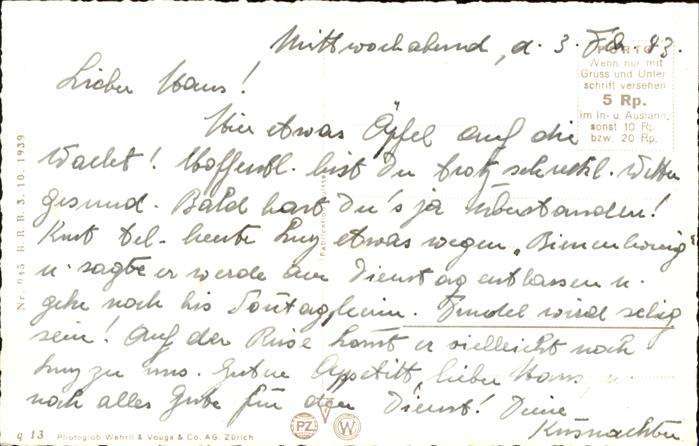 Mittwochabend, d. 3. Feb. 43.
PORTO
Wenn nur mit
Gruss und Unter
schrift versehen
5 Rp.
im In- u. Ausland,
sonst 10 Rp.
bzw. 20 Rp.
Lieber Hans!
Hier etwas Äpfel auf die
Wacht! Hoffentl. bist Du trotz schreckl. Wetter
gesund. Bald hast Du's ja überstanden!
Kurt tel. heute etwas wegen „Bienenhonig
u. sagte er werde am Dienstag entlassen u.
gehe noch bis Sontag heim. wird selig
sein! Auf der Reise komt er vielleicht noch
zu uns. Guten Appetitt, lieber Hans, u.
noch alles Gute für den Dienst! Deine
Küsnachter
Nr. 945 B.R.B. 3. 10. 1939
q 13 Photoglob-Wehrli & Vouga & Co. AG. Zürich
PZ V W